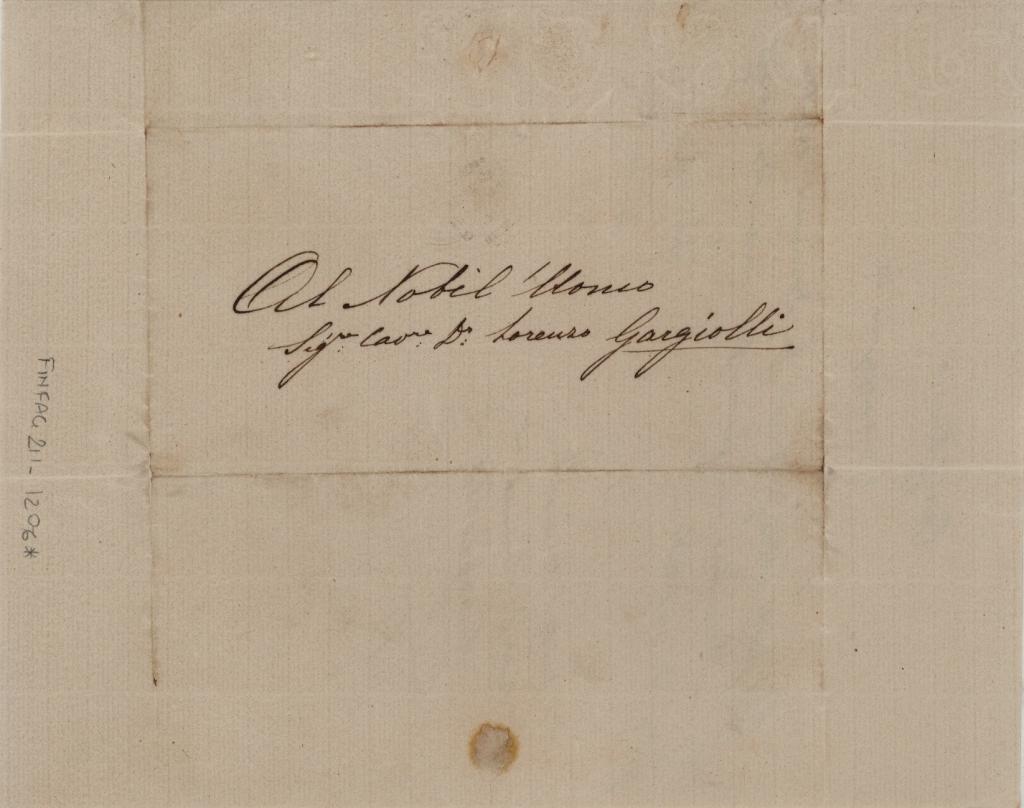 Al Nobil 'Uomo
Sigre. Cavre. Dr. Lorenzo Gargiolli
FINFAG 211-1206*